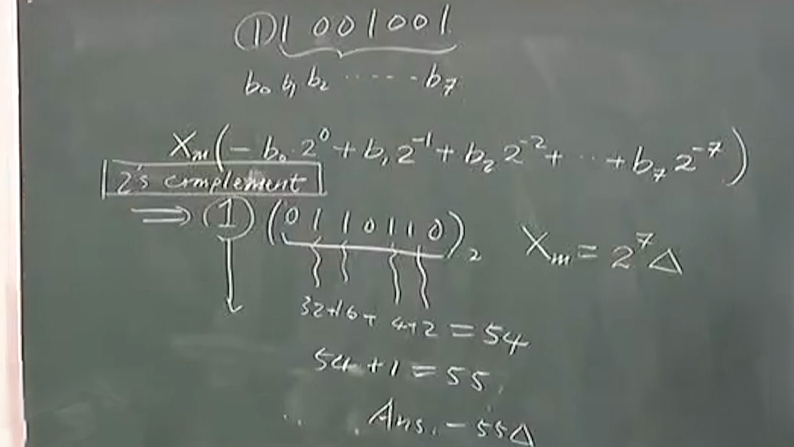 ① 1 0 0 1 0 0 1
b₀ b₁ b₂ ······ b₇
Xₘ(− b₀·2⁰ + b₁2⁻¹ + b₂2⁻² + ··· + b₇2⁻⁷)
2's complement
⇒ ① (0 1 1 0 1 1 0)₂ Xₘ = 2⁷Δ
32+16+ 4+2 = 54
54+1 = 55
Ans. −55Δ